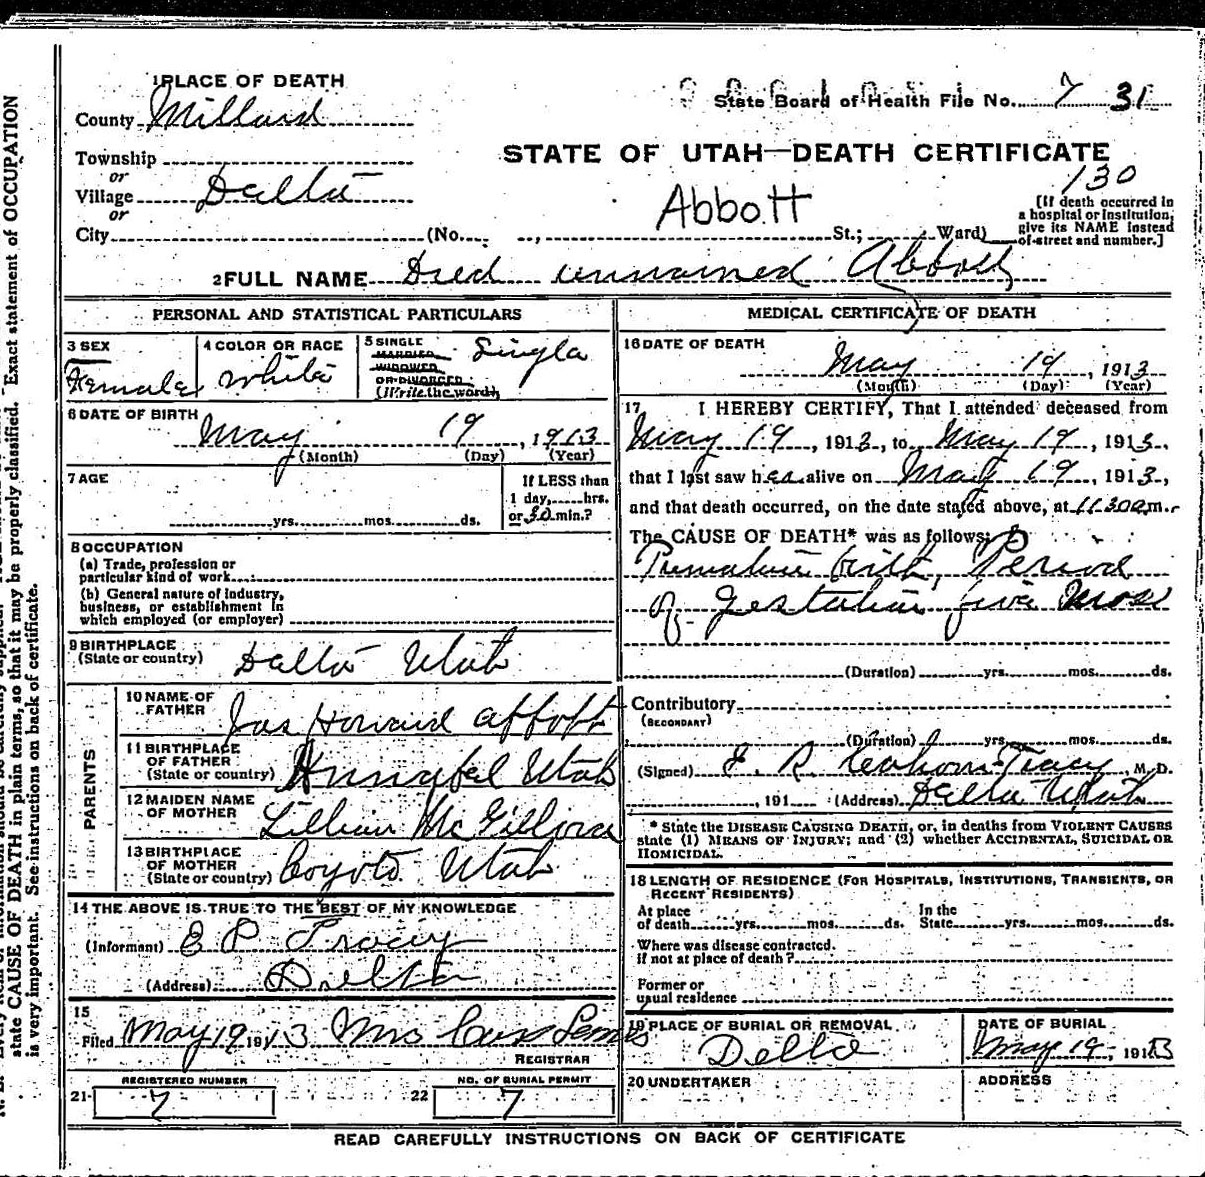 1 PLACE OF DEATH
State Board of Health File No. 7 31
County Millard
STATE OF UTAH—DEATH CERTIFICATE
130
Township
or
Village Dalta
or
City (No. , St.; Ward)
Abbott
[If death occurred in
a hospital or institution,
give its NAME instead
of street and number.]
2 FULL NAME Died unnamed Abbott
PERSONAL AND STATISTICAL PARTICULARS
3 SEX
Female
4 COLOR OR RACE
White
5 SINGLE
MARRIED
WIDOWED
OR DIVORCED
(Write the word)
Single
6 DATE OF BIRTH
May 19, 1913
(Month) (Day) (Year)
7 AGE
yrs. mos. ds.
If LESS than
1 day, hrs.
or 30 min.?
8 OCCUPATION
(a) Trade, profession or
particular kind of work
(b) General nature of industry,
business, or establishment in
which employed (or employer)
9 BIRTHPLACE
(State or country) Dalta Utah
PARENTS
10 NAME OF
FATHER Jas Howard Abbott
11 BIRTHPLACE
OF FATHER
(State or country) Annabel Utah
12 MAIDEN NAME
OF MOTHER Lillian
13 BIRTHPLACE
OF MOTHER
(State or country) Coyoto Utah
14 THE ABOVE IS TRUE TO THE BEST OF MY KNOWLEDGE
(Informant) E P Tracy
(Address) Delta
15
Filed May 19 1913 Mrs
REGISTRAR
REGISTERED NUMBER
21 7
NO. OF BURIAL PERMIT
22 7
MEDICAL CERTIFICATE OF DEATH
16 DATE OF DEATH
May 19, 1913
(Month) (Day) (Year)
17 I HEREBY CERTIFY, That I attended deceased from
May 19, 1913, to May 19, 1913,
that I last saw her alive on May 19, 1913,
and that death occurred, on the date stated above, at 11.30a m.
The CAUSE OF DEATH* was as follows:
Premature birth, Period
of Gestation five mos
(Duration) yrs. mos. ds.
Contributory
(SECONDARY)
(Duration) yrs. mos. ds.
(Signed) Tracy, M.D.
, 191 (Address) Dalta Utah
* State the DISEASE CAUSING DEATH, or, in deaths from VIOLENT CAUSES
state (1) MEANS OF INJURY; and (2) whether ACCIDENTAL, SUICIDAL OR
HOMICIDAL.
18 LENGTH OF RESIDENCE (FOR HOSPITALS, INSTITUTIONS, TRANSIENTS, OR
RECENT RESIDENTS)
At place
of death yrs. mos. ds.
In the
State yrs. mos. ds.
Where was disease contracted,
if not at place of death?
Former or
usual residence
19 PLACE OF BURIAL OR REMOVAL
Delta
DATE OF BURIAL
May 19, 1913
20 UNDERTAKER
ADDRESS
READ CAREFULLY INSTRUCTIONS ON BACK OF CERTIFICATE
state CAUSE OF DEATH in plain terms, so that it may be properly classified. Exact statement of OCCUPATION
is very important. See instructions on back of certificate.